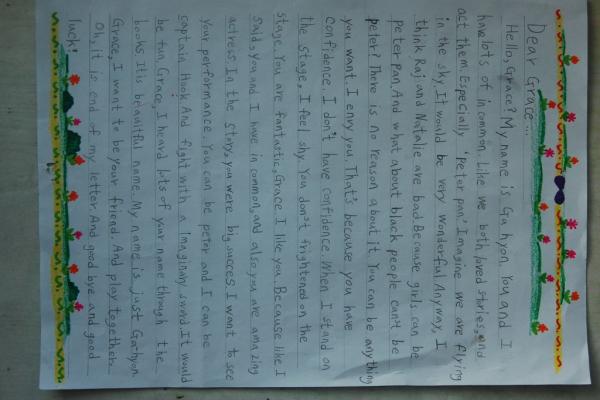 Dear Grace...
Hello, Grace? My name is Gahyon You and I
have lots of in common. Like we both loved stories, and
act them. Especially 'Peter pan.' Imagine we are flying
in the sky. It would be very wonderful. Anyway, I
think Raj and Natalie are bad Because girls can be
peter pan. And what about black people can't be
peter! There is no reason about it you can be anything
you want. I envy you. That's because you have
confidence. I don't have confidence When I stand on
the stage, I feel shy. You don't frightened on the
stage. You are fantastic, Grace. I like you. Because like I
said, you and I have in common, and also you are amazing
actress. In the story, you were big succes. I want to see
your performance. You can be peter and I can be
captain Hook. And fight with a imaginary sword. It would
be fun. Grace, I heard lots of your name through the
books. It is beautiful name. My name is just Gahyon.
Grace, I want to be your friend. And play together.
Oh, it is end of my letter. And good bye and good
luck!